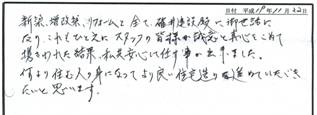 日付 平成19年11月22日
新築、増改築、リフォームと全て、碓井建設殿に御世話に
なり、これもひとえに スタッフの皆様が誠意と真心をこめて
頑張られた結果、私共安心して任す事が出来ました。
何より住む人の身になって、より良い住宅造りを進めていただき
たいと思います。